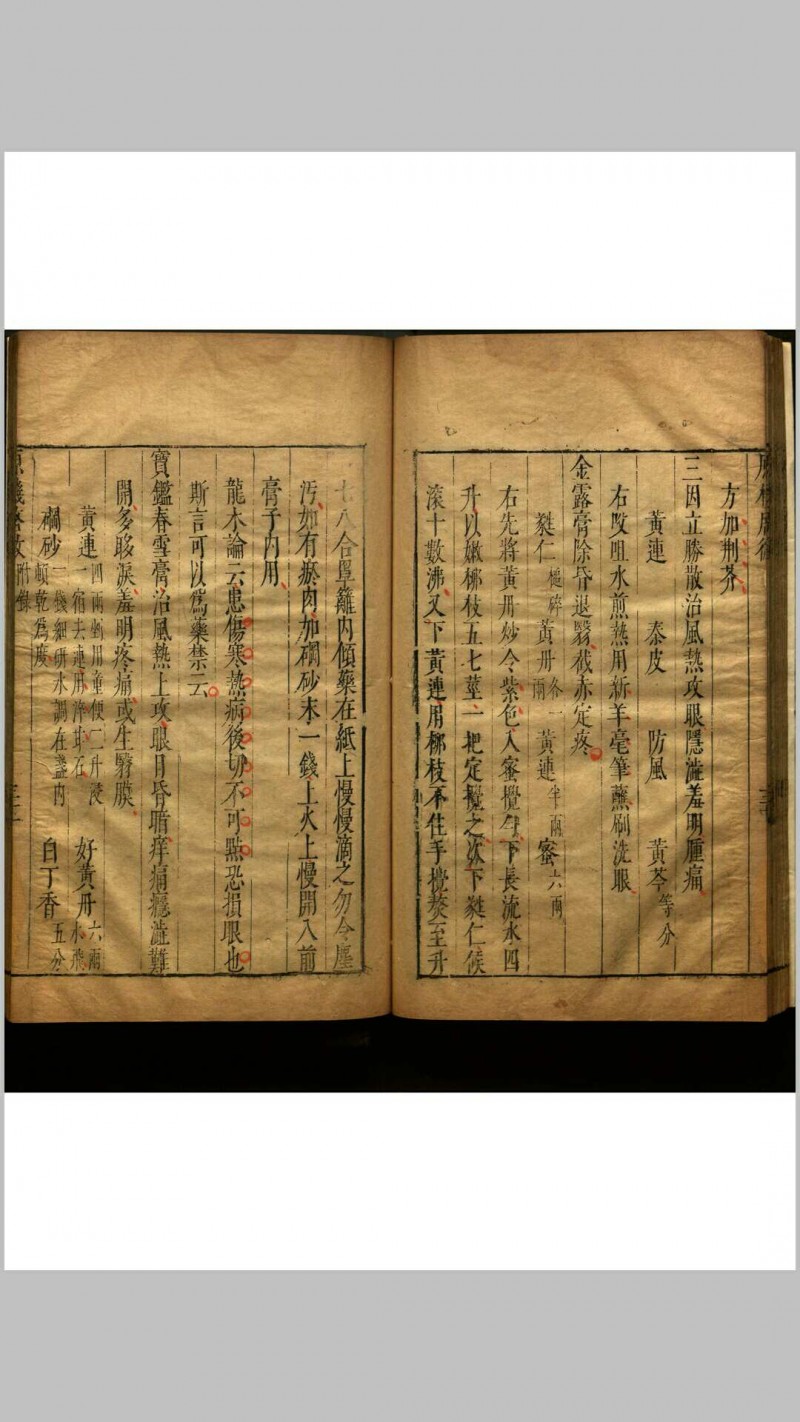 方加荆芥
三因立勝散治風熱攻眼隱澁羞明腫痛
黃連　秦皮　防風　黃芩等分
右㕮咀水煎熱用新羊毫筆蘸刷洗眼
金露膏除昏退翳截赤定疼
蕤仁槌碎　黃丹各一兩　黃連半兩　蜜六兩
右先將黃丹炒令紫色入蜜攪勻下長流水四
升以嫩柳枝五七莖一把定攪之次下蕤仁候
滾十數沸又下黃連用柳枝不住手攪熬至升
七八合單籬內傾藥在紙上慢慢滴之勿令塵
汚如有瘀肉加硇砂末一錢上火上慢開入前
膏子內用
龍木論云患傷寒熱病後切不可點恐損眼也
斯言可以爲藥禁云
寶鑑春雪膏治風熱上攻眼目昏暗痒痛癮澁難
開多眵淚羞明疼痛或生翳膜
黃連四兩剉用童便二升浸一宿去連用淬甘石　好黃丹六兩水飛
硇砂一錢細研水調在盞內頓乾爲度　白丁香五分
附錄